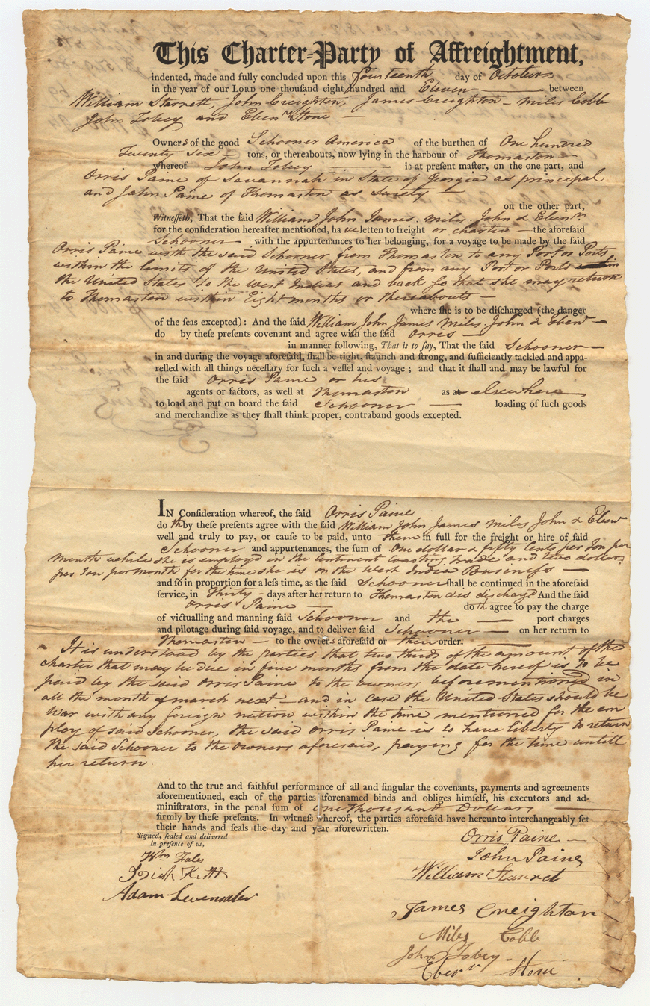 This Charter-Party of Affreightment,
indented, made and fully concluded upon this fourteenth day of October
in the year of our LORD one thousand eight hundred and Eleven between
William Starrett, John Creighton, James Creighton Miles Cobb
John Tobey and Ebenr Stone
Owners of the good Schooner America of the burthen of One hundred
Twenty Six tons, or thereabouts, now lying in the harbour of Thomaston
whereof John Tobey is at present master, on the one part, and
Orris Paine of Savannah in State of Georgia as principal
and John Paine of Thomaston as Surety
on the other part,
Witnesseth, That the said William John James, Miles John & Ebenr
for the consideration hereafter mentioned, have letten to freight or charter the aforesaid
Schooner with the appurtenances to her belonging, for a voyage to be made by the said
Orris Paine with the said Schooner from Thomaston to any Port or Ports
within the limits of the United States, and from any Port or Ports in
the United States to the West Indies and back so that she may return
to Thomaston within Eight months or thereabouts
where she is to be discharged (the danger
of the seas excepted): And the said William John James Miles John & Ebenr
do by these presents covenant and agree with the said Orris
in manner following, That is to say, That the said Schooner
in and during the voyage aforesaid, shall be tight, staunch and strong, and sufficiently tackled and appa-
relled with all things necessary for such a vessel and voyage; and that it shall and may be lawful for
the said Orris Paine or his
agents or factors, as well at Thomaston as elsewhere
to load and put on board the said Schooner loading of such goods
and merchandize as they shall think proper, contraband goods excepted.
IN Consideration whereof, the said Orris Paine
doth by these presents agree with the said William John James Miles John & Ebenr
well and truly to pay, or cause to be paid, unto them in full for the freight or hire of said
Schooner and appurtenances, the sum of One dollar & fifty Cents per ton per
month while she is employed in the Coasting trade and two dollars
per Ton per month for the time she is on the West India Business
and so in proportion for a less time, as the said Schooner shall be continued in the aforesaid
service, in Thirty days after her return to Thomaston & is discharged And the said
Orris Paine doth agree to pay the charge
of victualling and manning said Schooner and the port charges
and pilotage during said voyage, and to deliver said Schooner on her return to
Thomaston to the owners aforesaid or their order.
It is understood by the parties that two thirds of the amount of the
charter that may be due in five months from the date hereof is to be
paid by the said Orris Paine to the owners beforementioned in
all the month of march next and in case the United States should be
War with any foreign nation within the time mentioned for the em
ploy of said Schooner, the said Orris Paine is to have liberty to return
the said Schooner to the owners aforesaid, paying for the time untill
her return
And to the true and faithful performance of all and singular the covenants, payments and agreements
aforementioned, each of the parties forenamed binds and obliges himself, his executors and ad-
ministrators, in the penal sum of One thousand Dollars
firmly by these presents. In witness whereof, the parties aforesaid have hereunto interchangeably set
their hands and seals the day and year aforewritten.
Signed, sealed and delivered
in presence of us,
Orris Paine
John Paine
Wm
William Starret
Adam Levensaler
James Creighton
Miles Cobb
John Tobey
Ebenr Stone